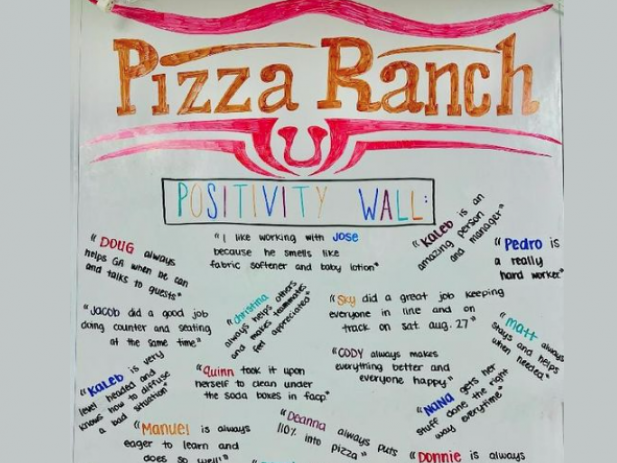 Pizza Ranch
POSITIVITY WALL:
"DOUG always
helps GA when he can
and talks to guests"
"I like working with JOSE
because he smells like
fabric softener and baby lotion"
"KALEB is an
amazing person
and manager"
"Pedro is
a really
hard worker"
"Jacob did a good job
doing counter and seating
at the same time"
"christina
always helps others
and makes teammates
feel appreciated"
"Sky did a great job keeping
everyone in line and on
track on sat aug. 27"
"matt always
stays and helps
when needed"
"KALEB is very
level headed and
knows how to diffuse
a bad situation"
"Quinn took it upon
herself to clean under
the soda boxes in facp"
"CODY always makes
everything better and
everyone happy"
"NaNa gets her
stuff done the right
way everytime"
"Manuel is always
eager to learn and
does so well!"
"Deanna always puts
110% into
pizza"
"Donnie is always